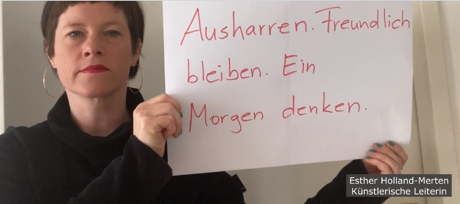 Ausharren. Freundlich
bleiben. Ein
Morgen denken.
Esther Holland-Merten
Künstlerische Leiterin